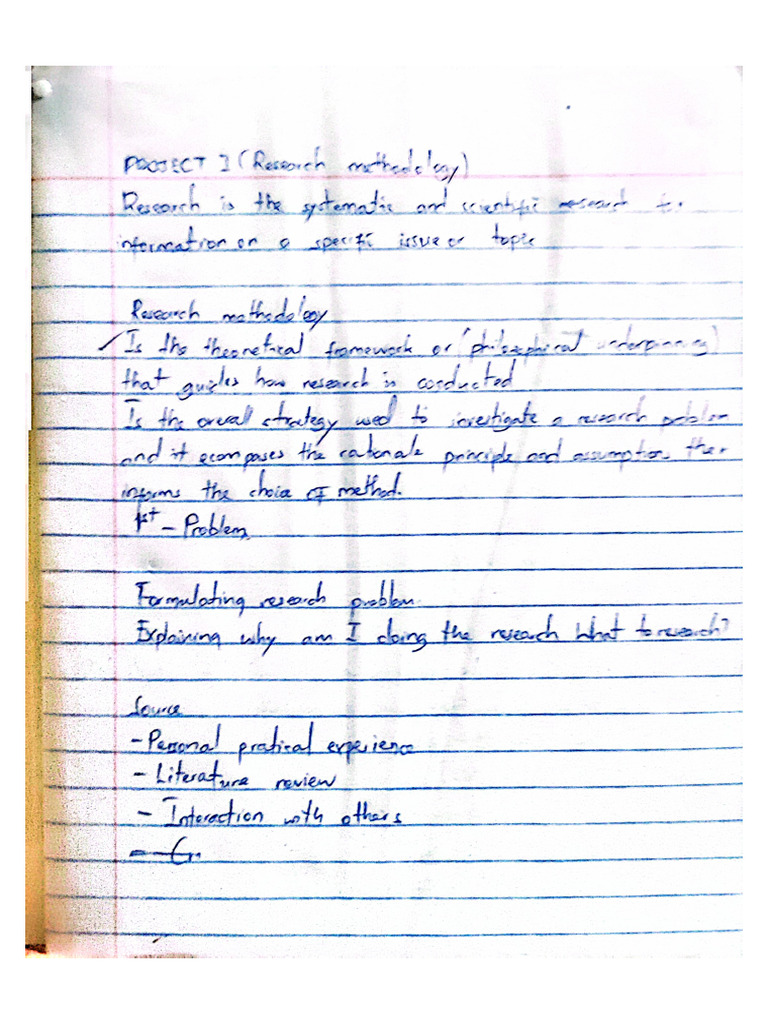 PROJECT I (Research methodology)
Research is the systematic and scientific research for
information on a specific issue or topic
Research methodology
✓ Is the theoretical framework or (philosophical underpinning)
that guides how research is conducted
Is the overall strategy used to investigate a research problem
and it ecompases the rationale principle and assumption
informs the choice of method.
1st - Problem
Formulating research problem.
Explaining why am I doing the research What to research?
Source
- Personal pratical experience
- Literature review
- Interaction with others